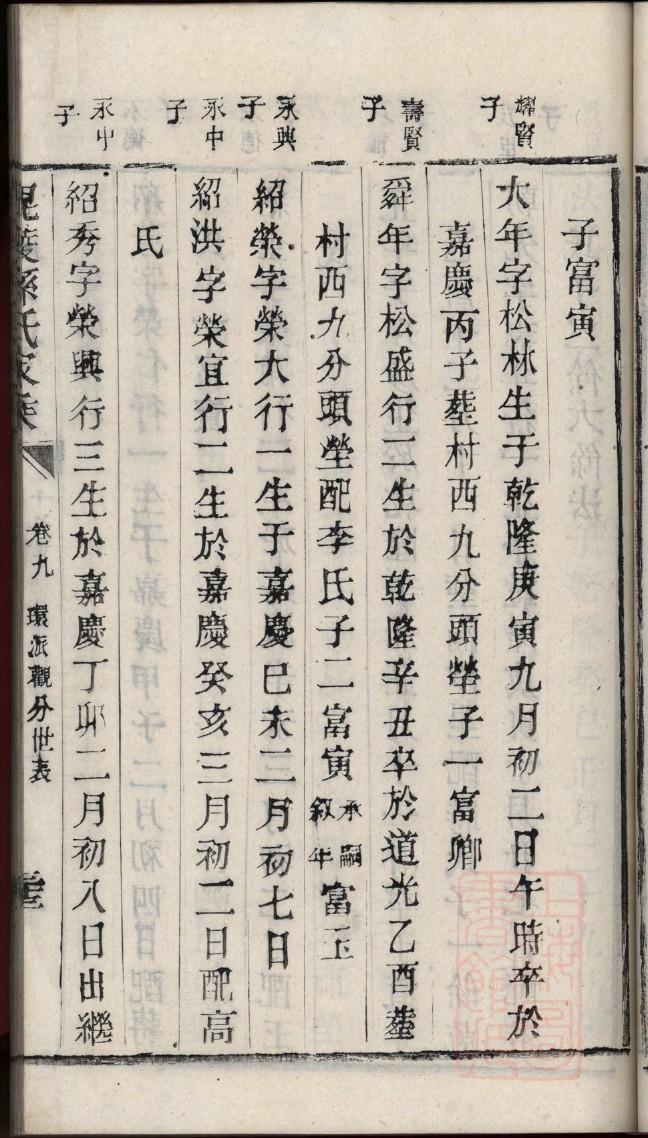 子富寅
耀賢子
大年字松林生于乾隆庚寅九月初二日午時卒於
嘉慶丙子塟村西九分頭塋子一富卿
壽賢子
舜年字松盛行二生於乾隆辛丑卒於道光乙酉塟
村西九分頭塋配李氏子二富寅承嗣叙年富玉
永興子
紹榮字榮大行一生于嘉慶已未三月初七日
永中子
紹洪字榮宜行二生於嘉慶癸亥三月初二日配高
氏
永中子
紹秀字榮興行三生於嘉慶丁卯二月初八日出繼
孫氏家乘
卷九 環派觀分世表